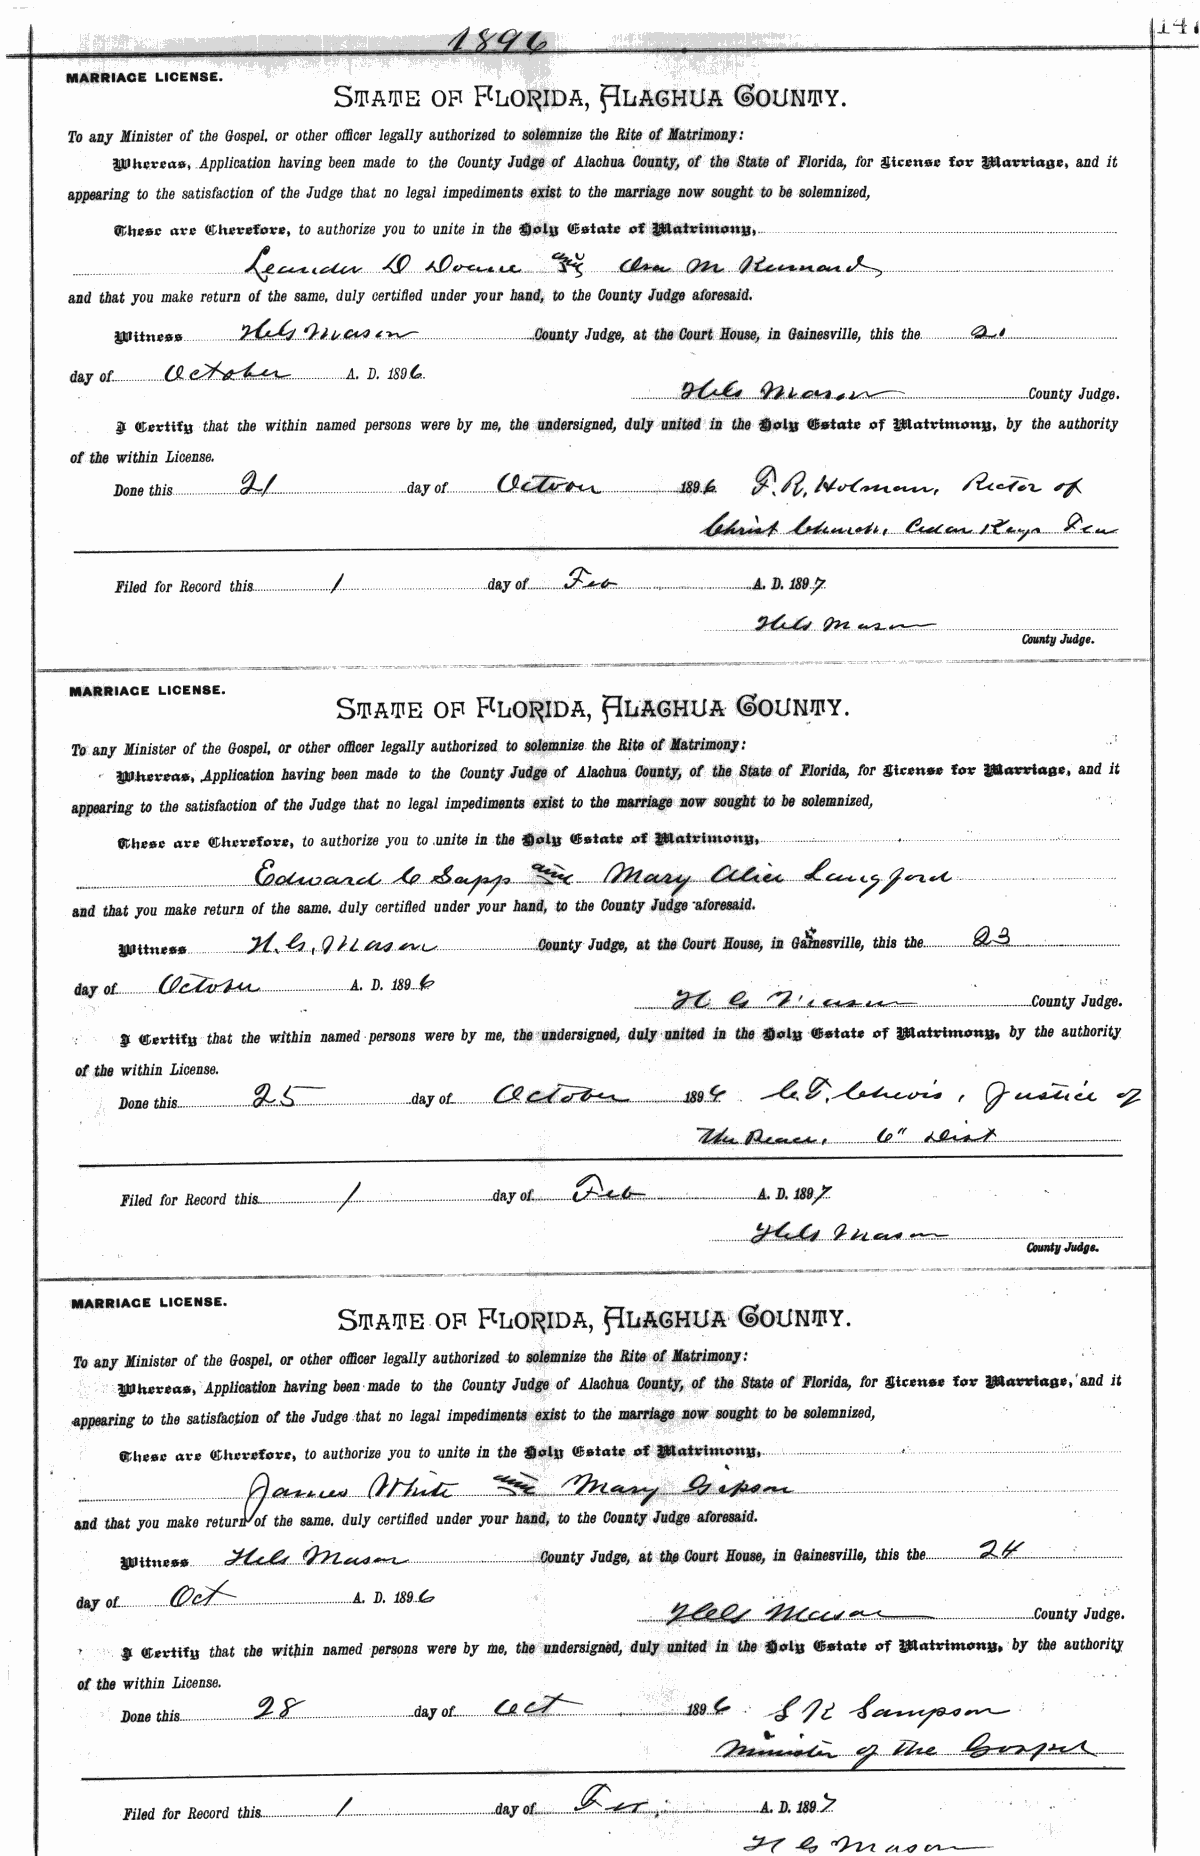 1896
147
MARRIAGE LICENSE.
STATE OF FLORIDA, ALACHUA COUNTY.
To any Minister of the Gospel, or other officer legally authorized to solemnize the Rite of Matrimony:
Whereas, Application having been made to the County Judge of Alachua County, of the State of Florida, for License for Marriage, and it
appearing to the satisfaction of the Judge that no legal impediments exist to the marriage now sought to be solemnized,
These are Therefore, to authorize you to unite in the Holy Estate of Matrimony,
Leander D Doane and M Kennard
and that you make return of the same, duly certified under your hand, to the County Judge aforesaid.
Witness Mason County Judge, at the Court House, in Gainesville, this the
day of October A. D. 1896
Mason County Judge.
I Certify that the within named persons were by me, the undersigned, duly united in the Holy Estate of Matrimony, by the authority
of the within License.
Done this 21 day of October 1896 F. R. Holman, Rector of
Christ Church, Cedar Keys
Filed for Record this 1 day of Feb A. D. 1897
Mason
County Judge.
MARRIAGE LICENSE.
STATE OF FLORIDA, ALACHUA COUNTY.
To any Minister of the Gospel, or other officer legally authorized to solemnize the Rite of Matrimony:
Whereas, Application having been made to the County Judge of Alachua County, of the State of Florida, for License for Marriage, and it
appearing to the satisfaction of the Judge that no legal impediments exist to the marriage now sought to be solemnized,
These are Therefore, to authorize you to unite in the Holy Estate of Matrimony,
Edward C Sapp and Mary Alice Langford
and that you make return of the same, duly certified under your hand, to the County Judge aforesaid.
Witness H. G. Mason County Judge, at the Court House, in Gainesville, this the 23
day of October A. D. 1896
H G Mason County Judge.
I Certify that the within named persons were by me, the undersigned, duly united in the Holy Estate of Matrimony, by the authority
of the within License.
Done this 25 day of October 1896 C. F. Justice of
The Peace, 6" Dist
Filed for Record this 1 day of Feb A. D. 1897
Mason
County Judge.
MARRIAGE LICENSE.
STATE OF FLORIDA, ALACHUA COUNTY.
To any Minister of the Gospel, or other officer legally authorized to solemnize the Rite of Matrimony:
Whereas, Application having been made to the County Judge of Alachua County, of the State of Florida, for License for Marriage, and it
appearing to the satisfaction of the Judge that no legal impediments exist to the marriage now sought to be solemnized,
These are Therefore, to authorize you to unite in the Holy Estate of Matrimony,
James White and Mary Gipson
and that you make return of the same, duly certified under your hand, to the County Judge aforesaid.
Witness Mason County Judge, at the Court House, in Gainesville, this the 24
day of Oct A. D. 1896
Mason County Judge.
I Certify that the within named persons were by me, the undersigned, duly united in the Holy Estate of Matrimony, by the authority
of the within License.
Done this 28 day of Oct 1896 S K Sampson
Minister of the Gospel
Filed for Record this 1 day of A. D. 1897
H G Mason